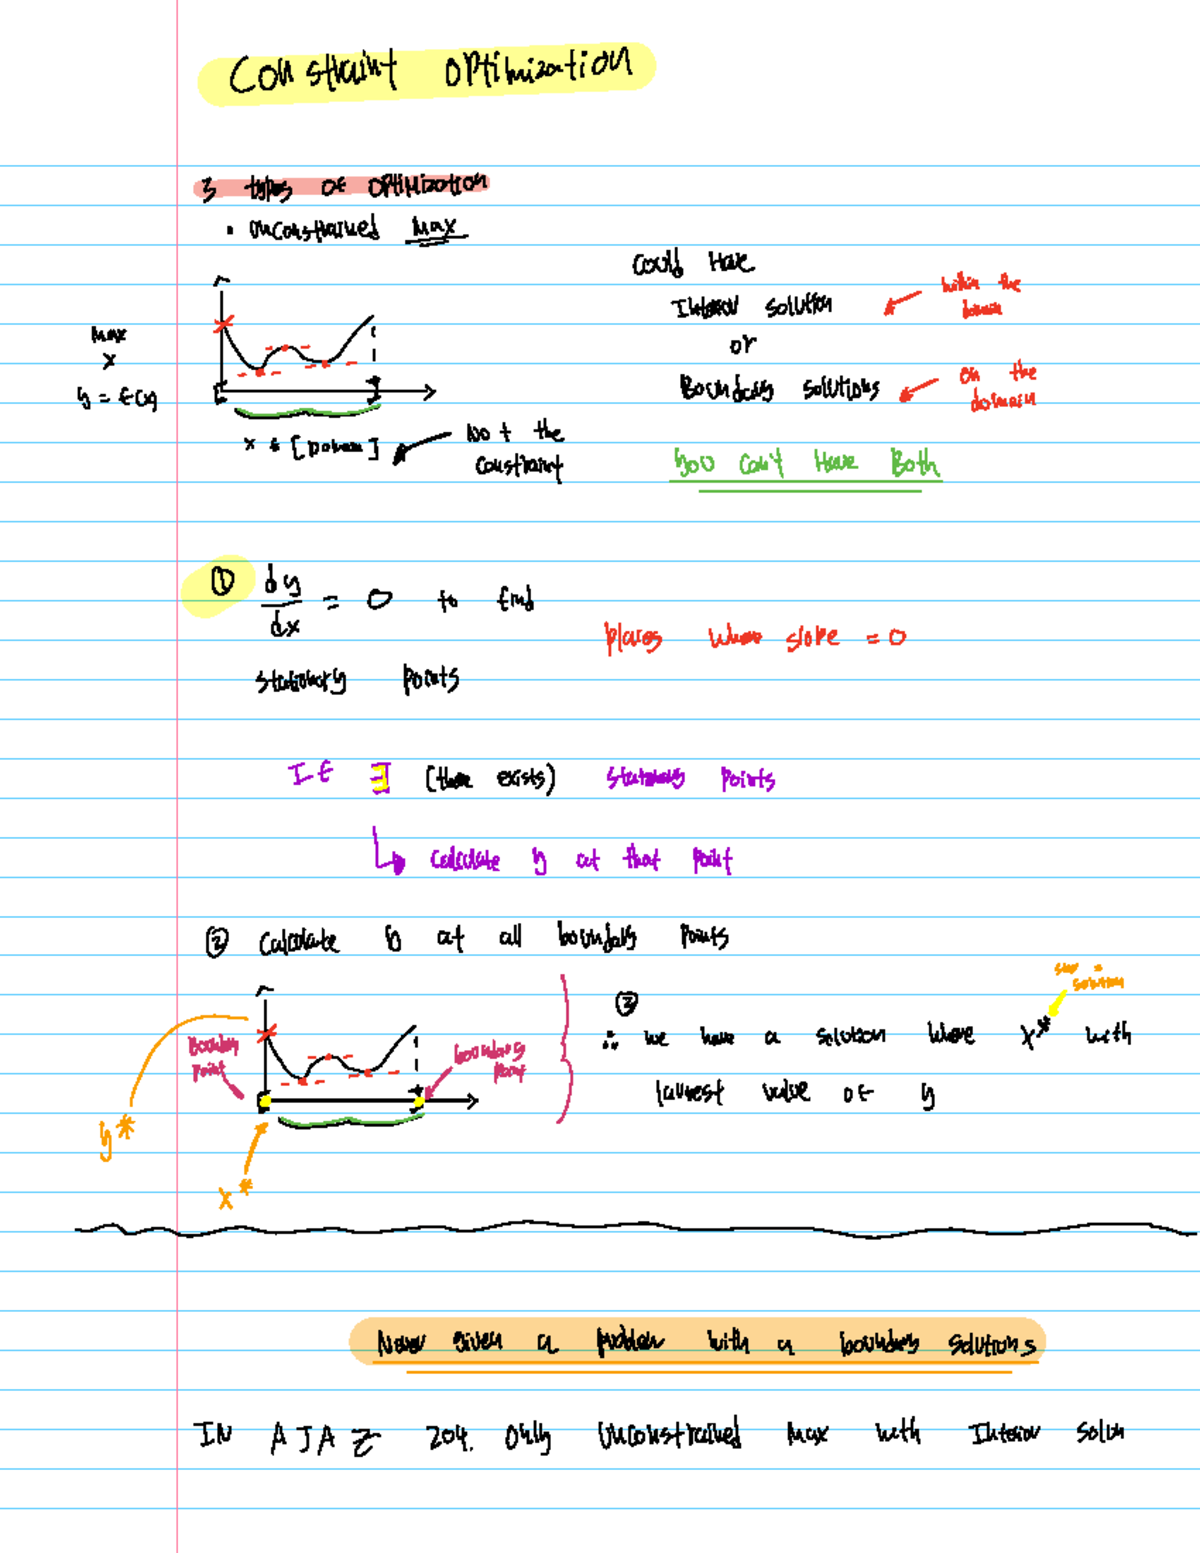 Constraint Optimization
3 types of optimization
• Unconstrained Max
Could Have
Interior solution
within the
domain
or
Boundary solutions
on the
domain
You Can't Have Both
Max
x
y = f(x)
x ∈ [Domain]
Not the
constraint
① dy/dx = 0 to find
Places where slope = 0
stationary points
If ∃ (there exists) stationary points
↳ calculate y at that point
② Calculate y at all boundary points
Boundary
Point
boundary
point
y*
x*
③
∴ we have a solution where x* with
largest value of y
star =
solution
Never given a problem with a boundary solutions
IN AJAZ 204. Only Unconstrained Max with Interior Soln